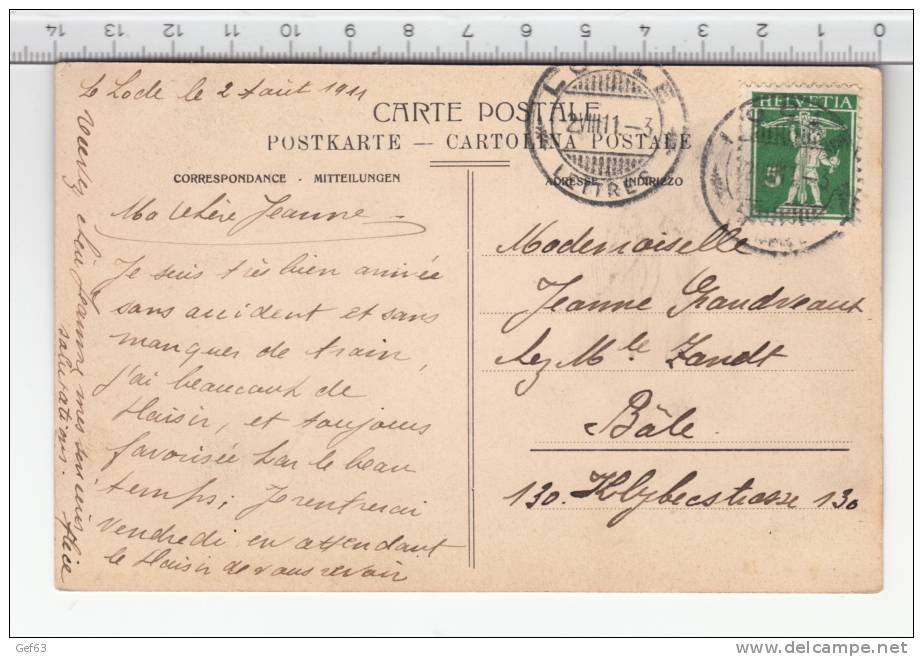 14 13 12 11 10 9 8 7 6 5 4 3 2 1 0
Le Locle le 2 Août 1911
CARTE POSTALE
POSTKARTE — CARTOLINA POSTALE
CORRESPONDANCE - MITTEILUNGEN
ADRESSE - INDIRIZZO
LOCLE
2.VIII.11.-3
LETTRES
HELVETIA
5
Ma Chère Jeanne
Je suis très bien arrivée
sans accident et sans
manquer de train,
j'ai beaucoup de
plaisir, et toujours
favorisée par le beau
temps; Je rentrerai
vendredi en attendant
le plaisir de vous revoir
Recevez chère Jeanne mes
salutations. Alice
Mademoiselle
Jeanne Grandvaux
chez Mlle Zandt
Bâle
130. Klybeckstrasse 130
Gef63
delcampe.net